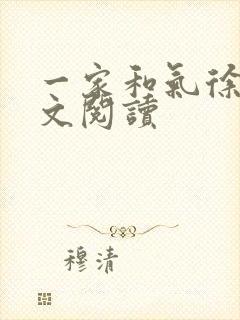 一家和氣徐
文閱讀
穆清